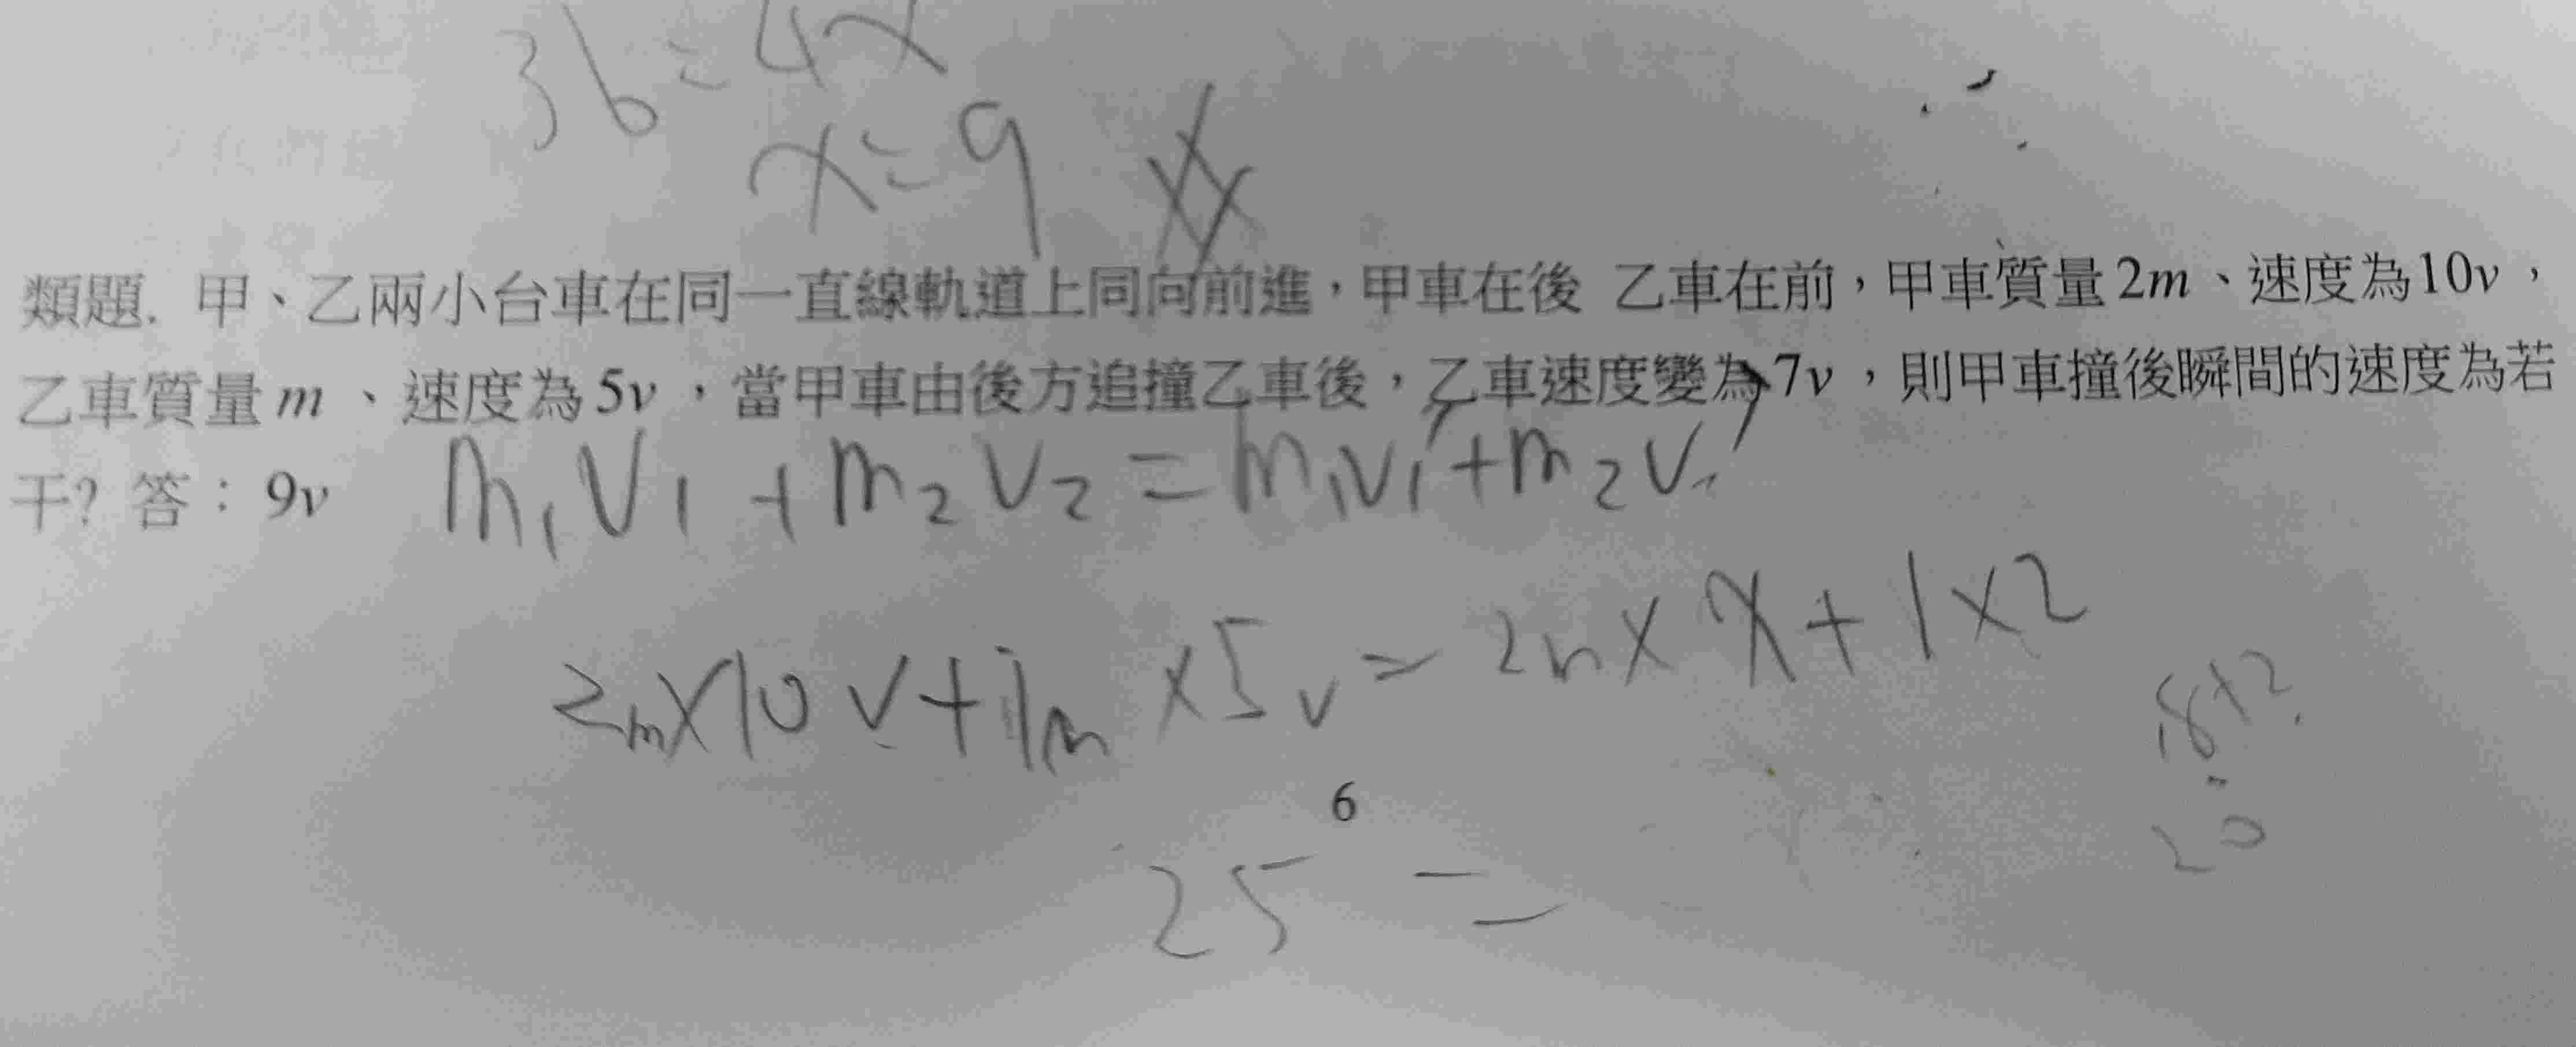 36=4x
x=9
類題. 甲、乙兩小台車在同一直線軌道上同向前進，甲車在後 乙車在前，甲車質量2m、速度為10v，
乙車質量m、速度為5v，當甲車由後方追撞乙車後，乙車速度變為7v，則甲車撞後瞬間的速度為若
干? 答：9v
m₁V₁+m₂V₂=m₁V₁'+m₂V₂'
2m×10V+1m×5v=2m×x+1×2
18+2
=
20
6
25=